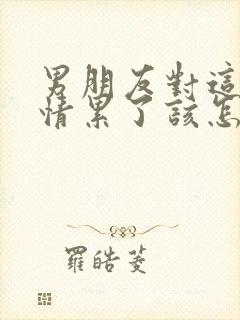 男朋友對這
情累了該怎
羅皓菱